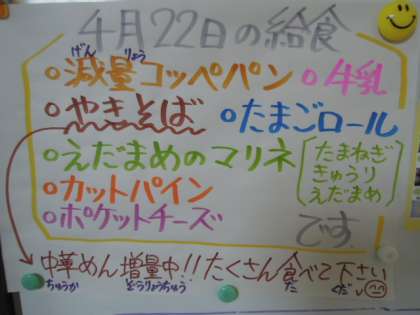 4月22日の給食
げん りょう
○減量コッペパン ○牛乳
○やきそば ○たまごロール
○えだまめのマリネ
たまねぎ
きゅうり
えだまめ
○カットパイン
○ポケットチーズ
です
中華めん増量中!!たくさん食べて下さい
ちゅうか ぞうりょうちゅう た くだ